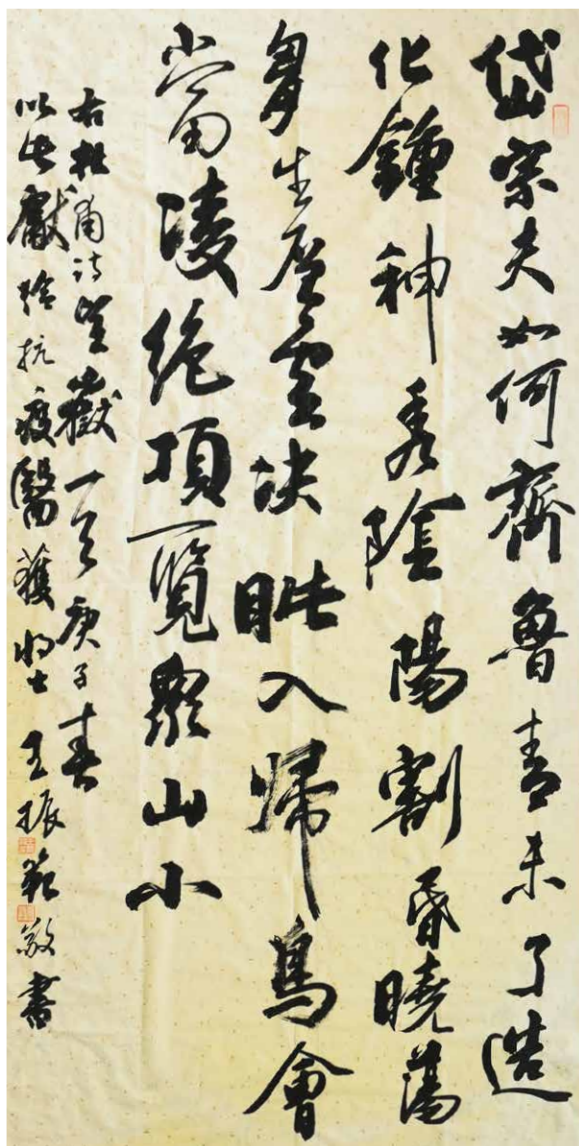 岱宗夫如何齊魯青未了造
化鍾神秀陰陽割昏曉蕩
胷生層雲決眦入歸鳥會
當凌絕頂一覽眾山小
右杜甫詩望嶽一首庚子春
以此獻給抗疫醫獲將士 王振範敬書